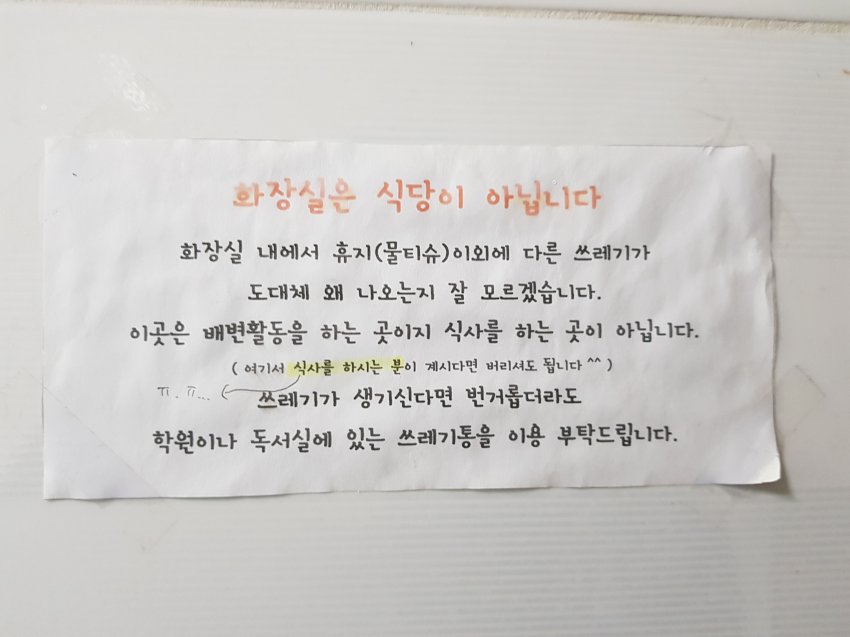 화장실은 식당이 아닙니다
화장실 내에서 휴지(물티슈)이외에 다른 쓰레기가
도대체 왜 나오는지 잘 모르겠습니다.
이곳은 배변활동을 하는 곳이지 식사를 하는 곳이 아닙니다.
( 여기서 식사를 하시는 분이 계시다면 버리셔도 됩니다 ^^ )
ㅠ.ㅠ...
쓰레기가 생기신다면 번거롭더라도
학원이나 독서실에 있는 쓰레기통을 이용 부탁드립니다.